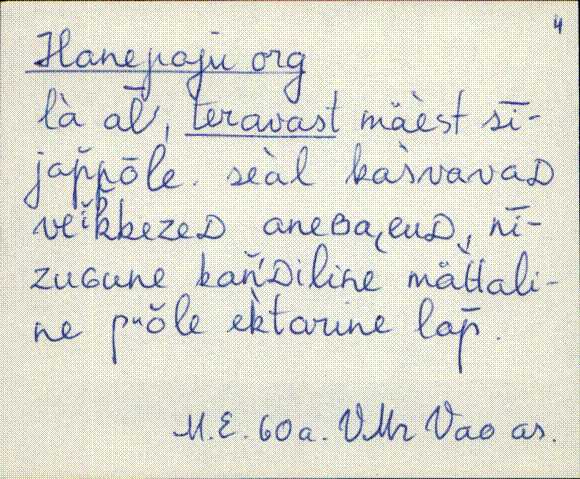 4
Hanepaju org
là al̄', teravast mäèst sī-
jap̆pōle. seàl kàsvavaD
veĭkkezeD aneBajuD, nī-
zuGune kańDilinè mä̀ttali-
ne pᵘŏle èktarine lap̄.
M.E. 60a. VMr Vao as.